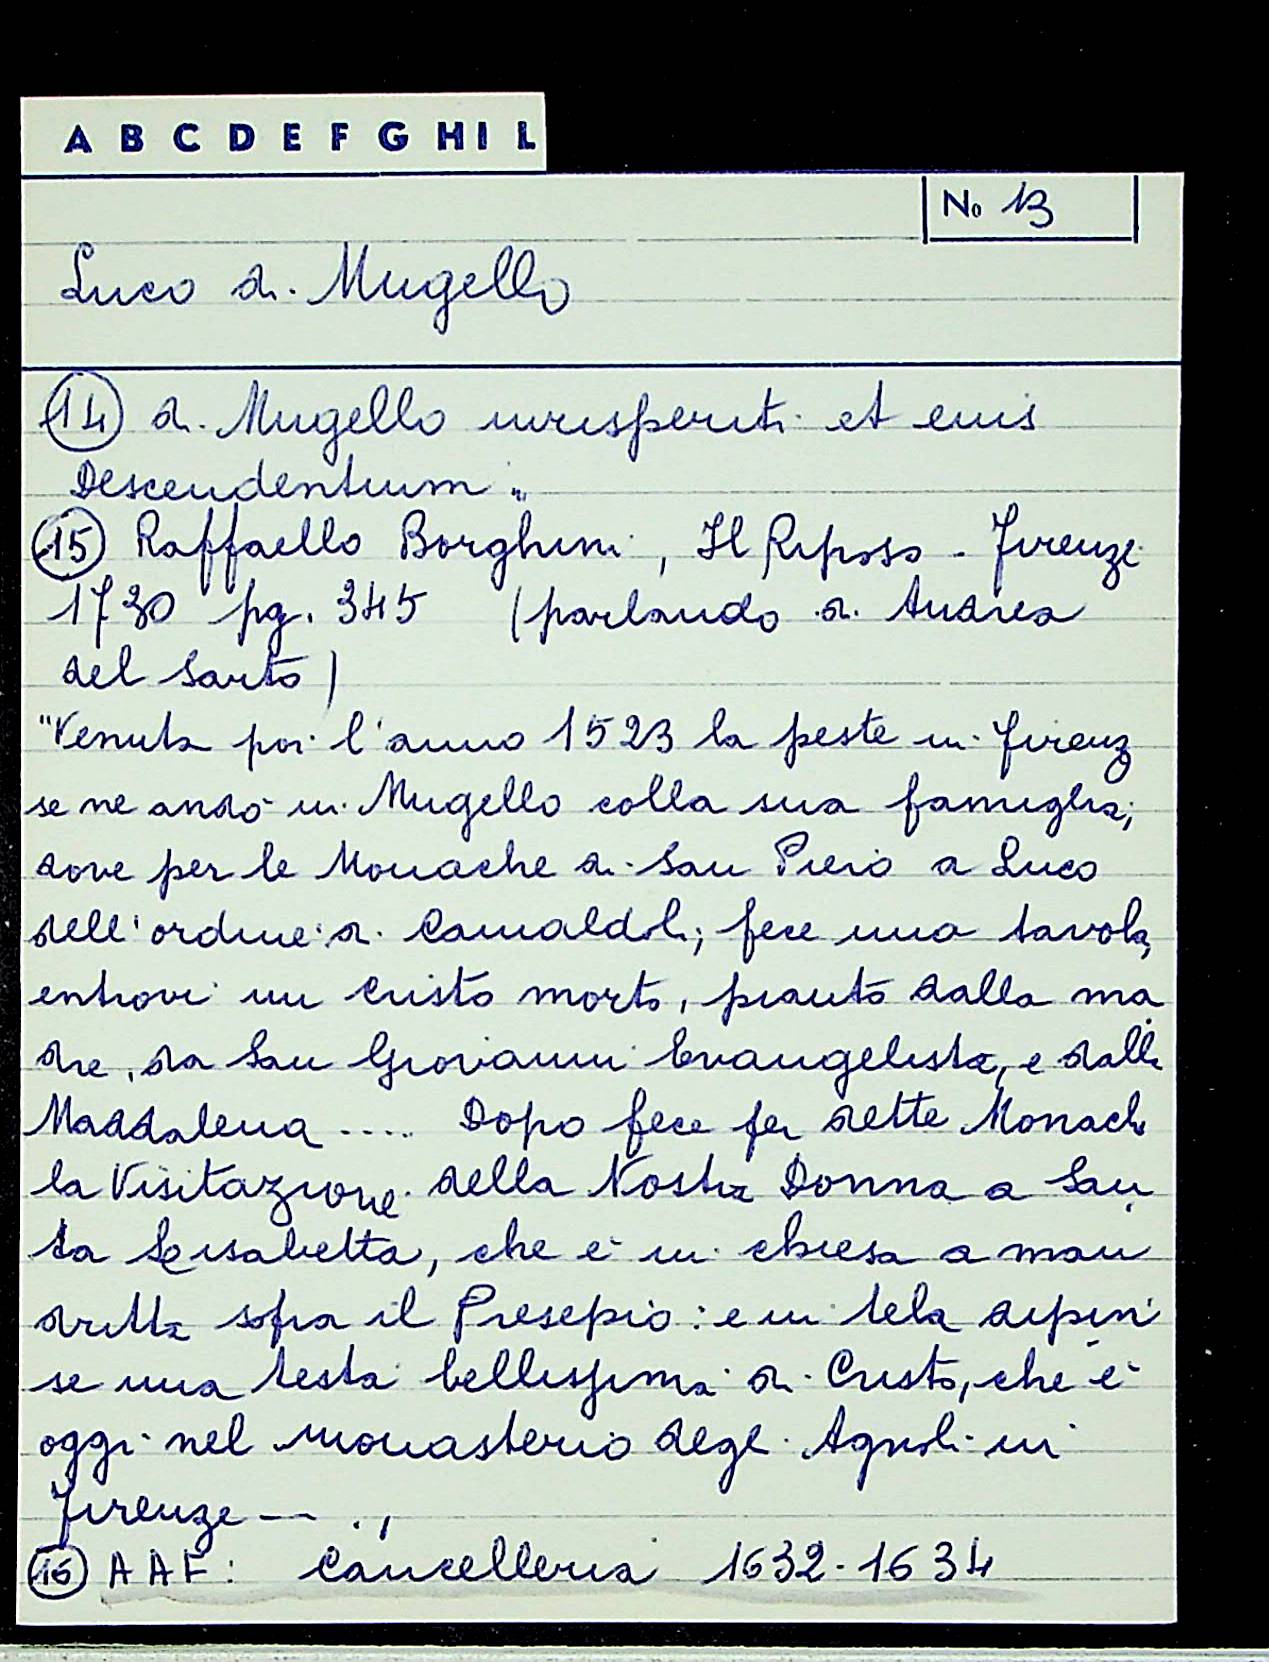 A B C D E F G H I L
No 13
Luco di Mugello
14 di Mugello iurisperiti et eius
Descendentium"
15 Raffaello Borghini, Il Riposo - Firenze
1730 pg. 345 (parlando di Andrea
del Sarto)
"Venuta poi l'anno 1523 la peste in Firenz
se ne andò in Mugello colla sua famiglia;
dove per le Monache di San Piero a Luco
dell'ordine di Camaldoli; fece una tavola,
entrovi un Cristo morto, pianto dalla ma
dre, da San Giovanni Evangelista, e dalla
Maddalena .... Dopo fece per dette Monach
la Visitazione della Nostra Donna a San
ta Lisabetta, che è in chiesa a man
dritta sopra il Presepio: e in tela dipin
se una testa bellissima di Cristo, che è
oggi nel monasterio degl Agnoli in
Firenze - - . "
16 AAF: Cancelleria 1632-1634